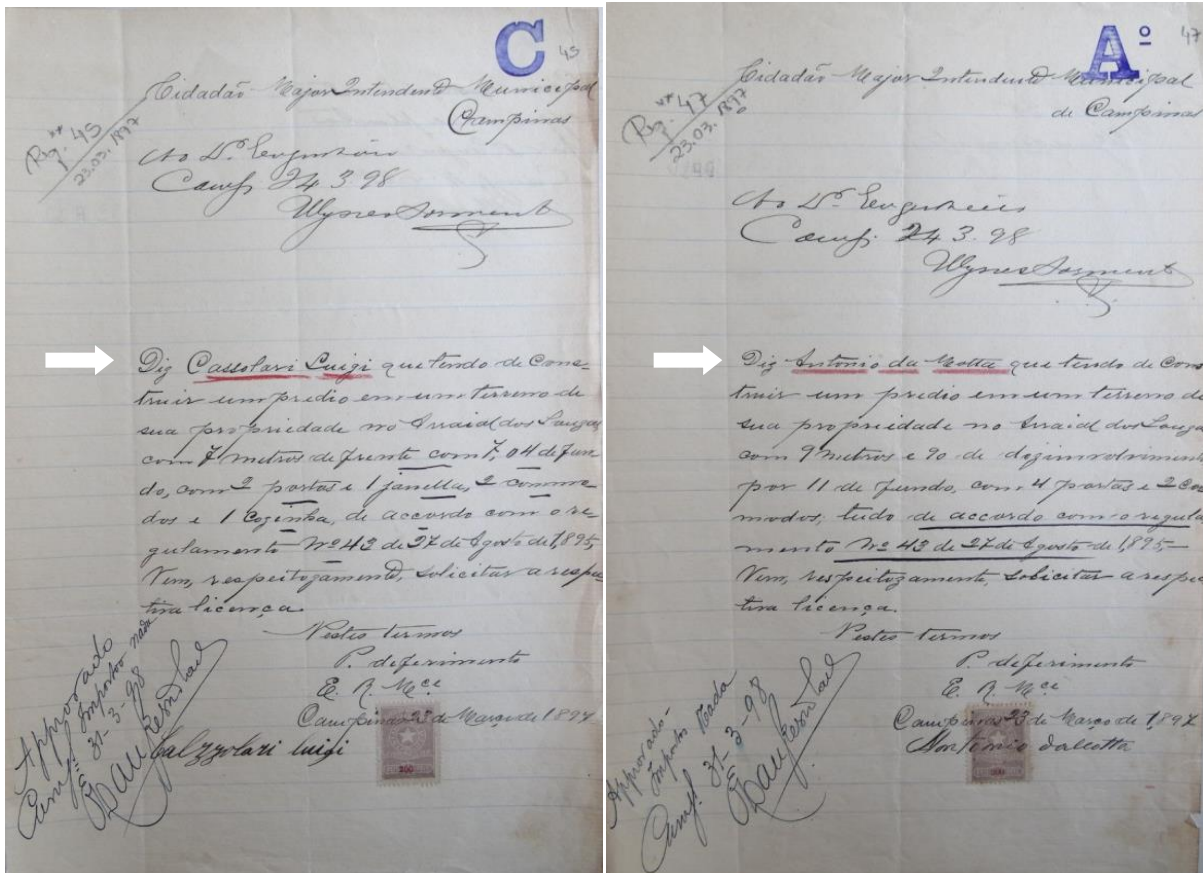 C
45
Cidadão Major Intendente Municipal
Campinas
Reg. 45
23.03.1897
Ao Dr. Engenheiro
Camp. 24.3.98
Diz Cassolari Luigi que tendo de Cons-
truir um predio em um terreno de
sua propriedade no Arraial dos Souzas
com 7 metros de frente com 7,04 de fun-
do, com 2 portas e 1 janella, 2 commo-
dos e 1 Cozinha, de accordo com o re-
gulamento Nº 43 de 27 de Agosto de 1,895
Vem, respeitozamente, solicitar a respec
tiva licença.
Nestes termos
P. deferimento
E. R. Mce
Campinas 23 de Março de 1,897
Calzzolari luigi
200
Approvado
Impostos nada
Camp. 31-3-98
Aº
47
Cidadão Major Intendente Municipal
de Campinas
Reg. 47
23.03.1897
Ao Dr. Engenheiro
Camp. 24.3.98
Diz Antonio da Motta que tendo de Cons
truir um predio em um terreno de
sua propriedade no Arraial dos Souzas
com 9 metros e 90 de dezimvolvimento
por 11 de fundo, com 4 portas e 2 co
modos, tudo de accordo com o regula
mento Nº 43 de 27 de Agosto de 1,895,—
Vem, respeitozamente, solicitar a respec
tiva licença.
Nestes termos
P. deferimento
E. R. Mce
Campinas 23 de Março de 1,897
200
Approvado-
Impostos Nada
Camp. 31-3-98